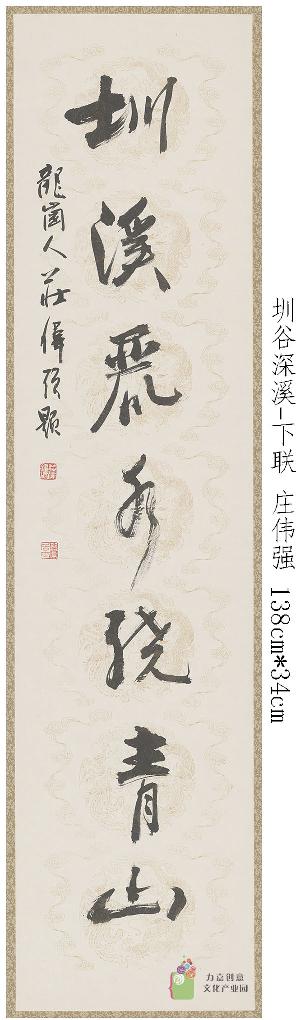 圳溪麗水繞青山
龍崗人莊偉强題
圳谷深溪-下联 庄伟强 138cm*34cm
力嘉创意
文化产业园